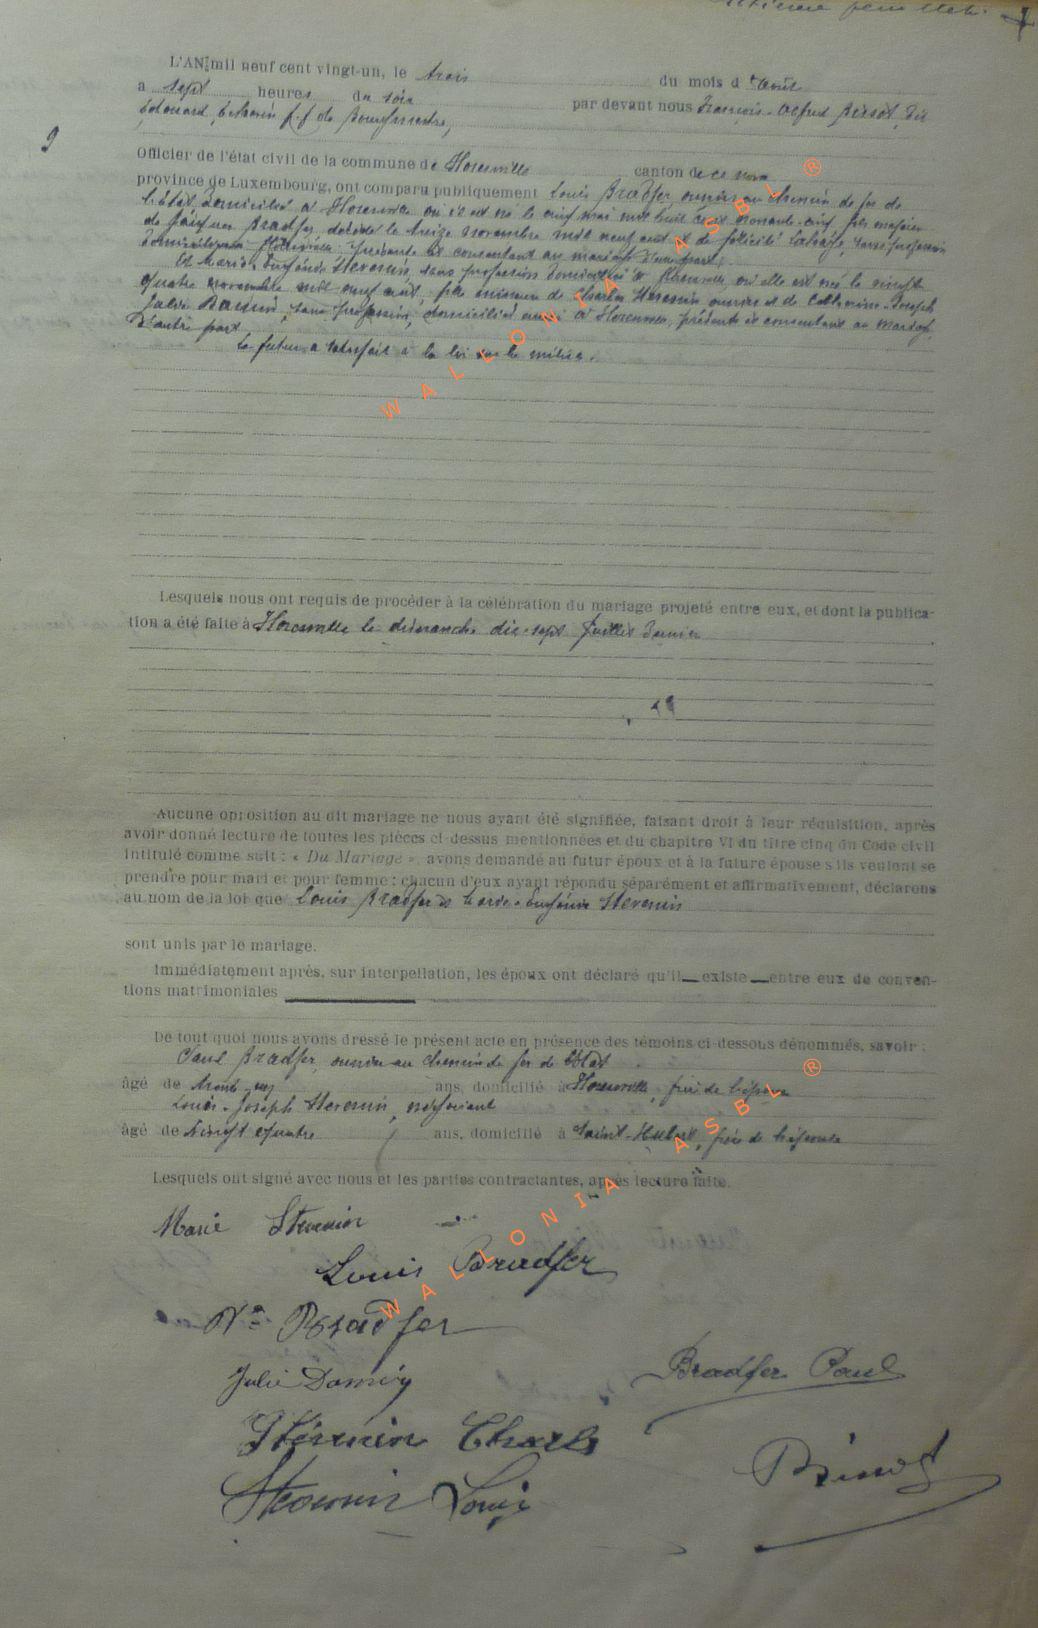 L'AN mil neuf cent vingt-un, le trois du mois d'août
a sept heures du soir par devant nous François-Alfred Bissot, dit
Edouard, Echevin f.f. de Bourgmestre,
9
Officier de l'état civil de la commune de canton de ce nom
province de Luxembourg, ont comparu publiquement Louis Bradfer ouvrier au chemin de fer de
l'état domicilié à où il est né le neuf mai mil huit cent nonante-cinq fils majeur
de Bradfer, décédé le treize novembre mil neuf cent et de félicité sans profession
domiciliée présente et consentant au mariage d'une part;
Et Marie-Euphénie Stevenin, sans profession domiciliée à où elle est née le vingt
quatre novembre mil neuf cent, fille mineure de Charles Stevenin ouvrier et de Catherine-Joseph
Julie sans profession, domiciliés aussi à présents et consentant au mariage,
D'autre part.
Le futur a satisfait à la loi sur la milice.
Lesquels nous ont requis de procéder à la célébration du mariage projeté entre eux, et dont la publica-
tion a été faite à le dimanche dix-sept juillet dernier
Aucune opposition au dit mariage ne nous ayant été signifiée, faisant droit à leur réquisition, après
avoir donné lecture de toutes les pièces ci-dessus mentionnées et du chapitre VI du titre cinq du Code civil
intitulé comme suit : « Du Mariage », avons demandé au futur époux et à la future épouse s'ils veulent se
prendre pour mari et pour femme : chacun d'eux ayant répondu séparément et affirmativement, déclarons
au nom de la loi que Louis Bradfer et Marie-Euphénie Stevenin
sont unis par le mariage.
Immédiatement après, sur interpellation, les époux ont déclaré qu'il existe entre eux de conven-
tions matrimoniales
De tout quoi nous avons dressé le présent acte en présence des témoins ci-dessous dénommés, savoir :
Paul Bradfer, ouvrier au chemin de fer de l'Etat
âgé de ans, domicilié à frère de l'époux
Louis-Joseph Stevenin, négociant
âgé de vingt quatre ans, domicilié à Saint-Hubert, frère de l'épouse
Lesquels ont signé avec nous et les parties contractantes, après lecture faite.
Marie Stevenin
Louis Bradfer
Vve Bradfer
Julie
Bradfer Paul
Stévenin Charles
Stevenin Louis
Bissot
WALLONIA ASBL ®
WALLONIA ASBL ®